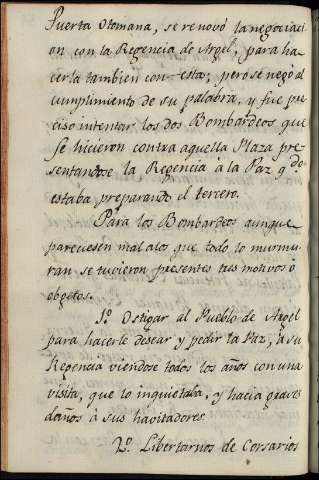 Puerta Otomana, se renovó la negociaci
on con la Regencia de Argel, para ha
cerla tambien con esta; pero se negó al
cumplimiento de su palabra, y fue pre
ciso intentar los dos Bombardeos que
se hicieron contra aquella Plaza pre
sentandose la Regencia à la Paz q.do
estaba preparando el tercero.
Para los Bombardeos aunque
pareciesen mal a los que todo lo murmu
ran se tuvieron presentes tres motivos ò
obgetos.
1.º Ostigar al Pueblo de Argel
para hacerle desear y pedir la Paz, à su
Regencia viendose todos los años con una
visita, que lo inquietaba, y hacia graves
daños à sus havitadores.
2.º Libertarnos de Corsarios